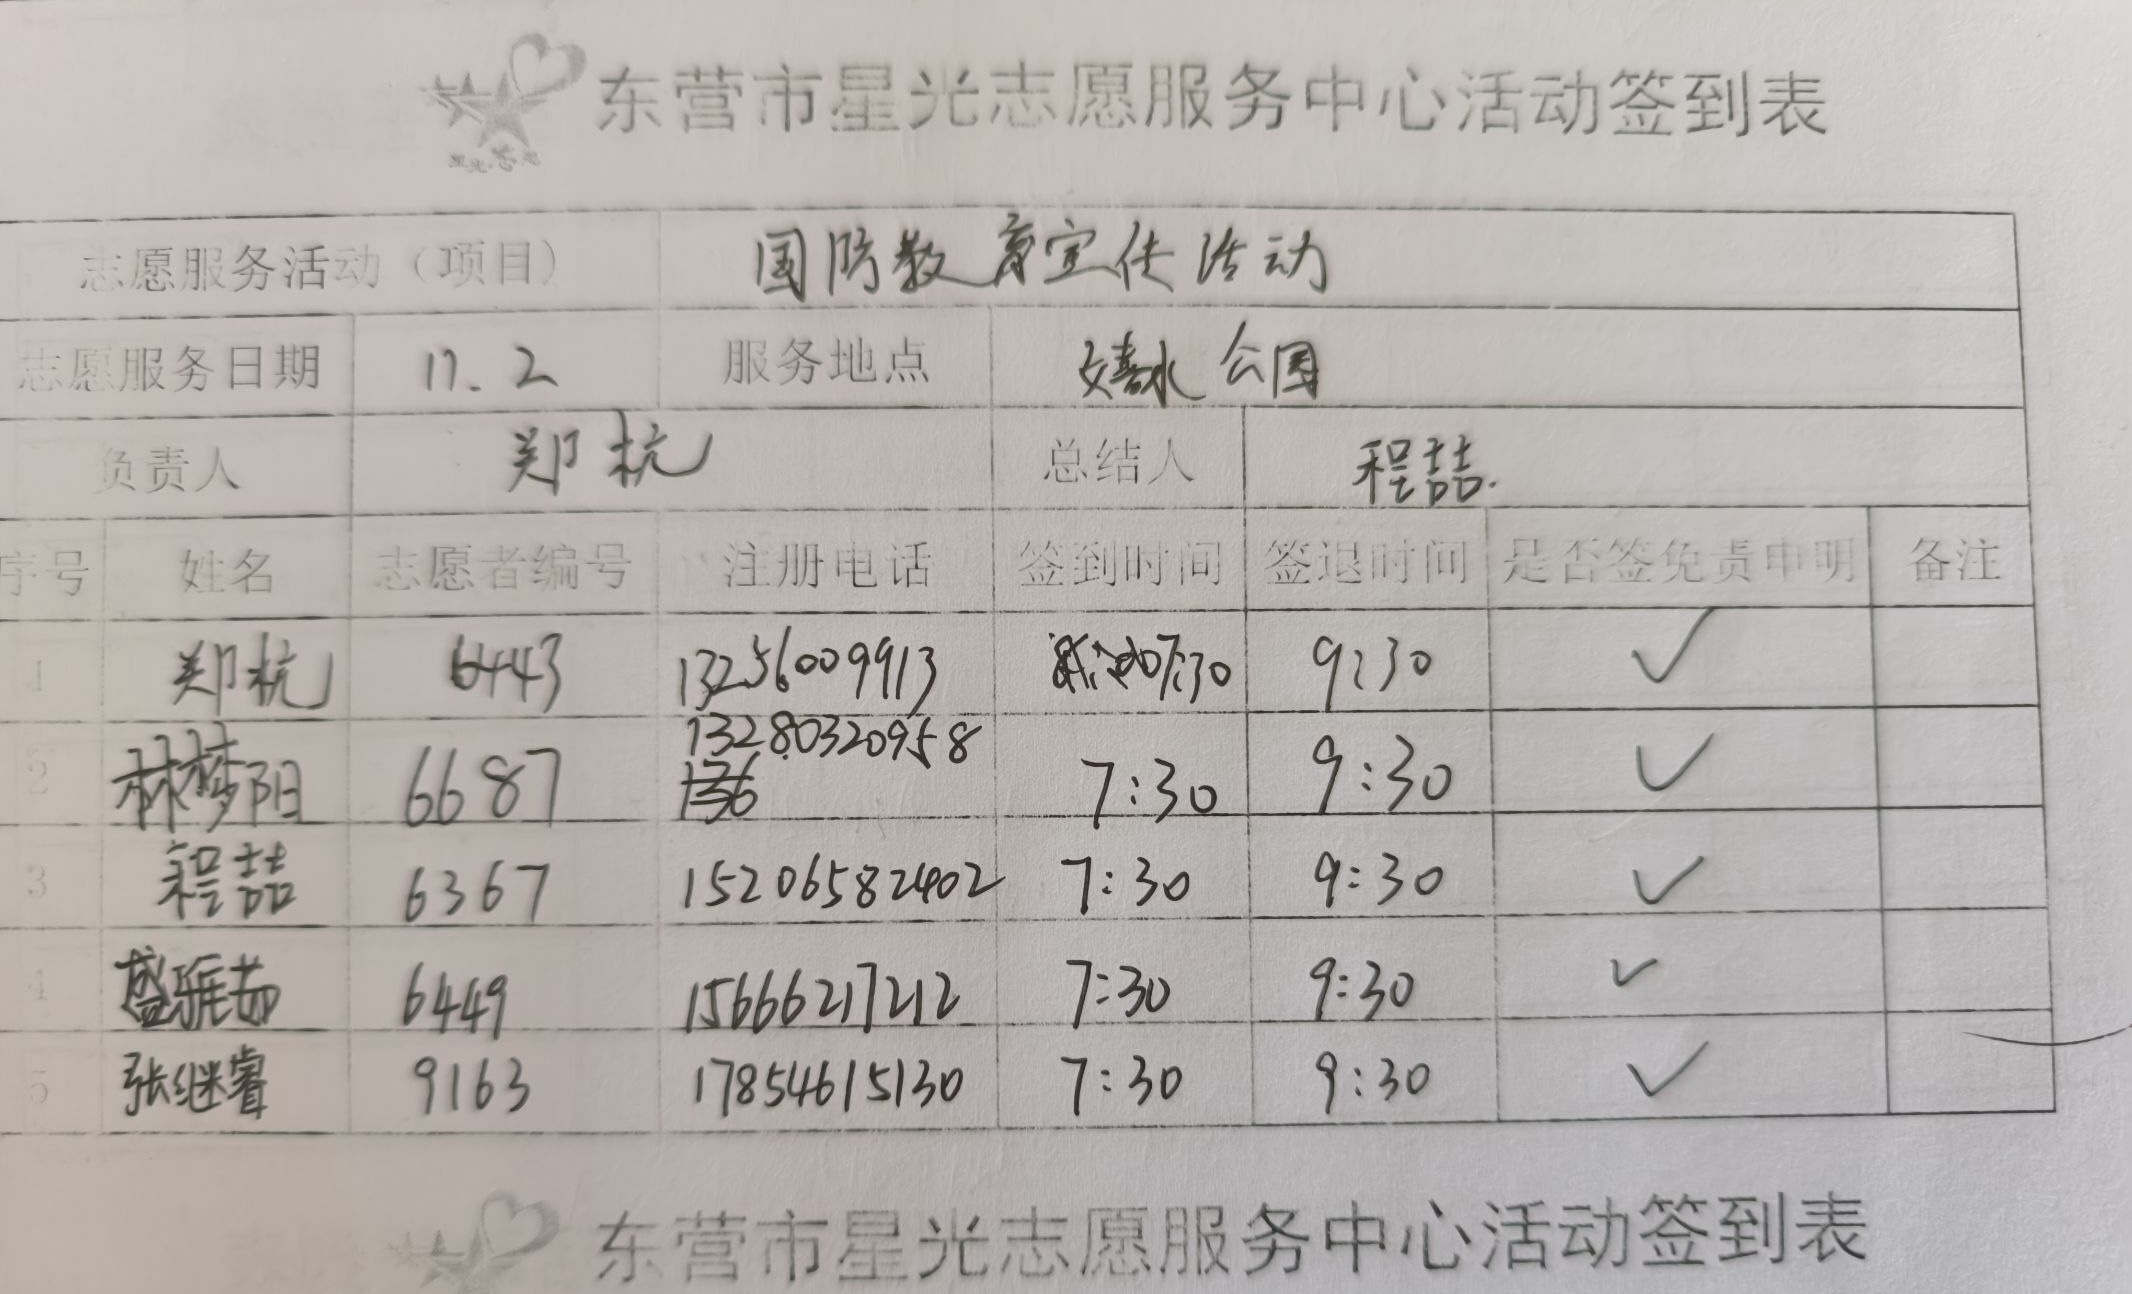 东营市星光志愿服务中心活动签到表
志愿服务活动（项目） 国防教育宣传活动
志愿服务日期 11.2 服务地点 嬉水公园
负责人 郑杭 总结人 程喆.
序号 姓名 志愿者编号 注册电话 签到时间 签退时间 是否签免责申明 备注
1 郑杭 6443 13256009913 7:30 9:30 ✓
2 林梦阳 6687 13280320958 7:30 9:30 ✓
136
3 程喆 6367 15206582402 7:30 9:30 ✓
4 盛雅茹 6449 15666217212 7:30 9:30 ✓
5 张继睿 9163 17854615130 7:30 9:30 ✓
东营市星光志愿服务中心活动签到表